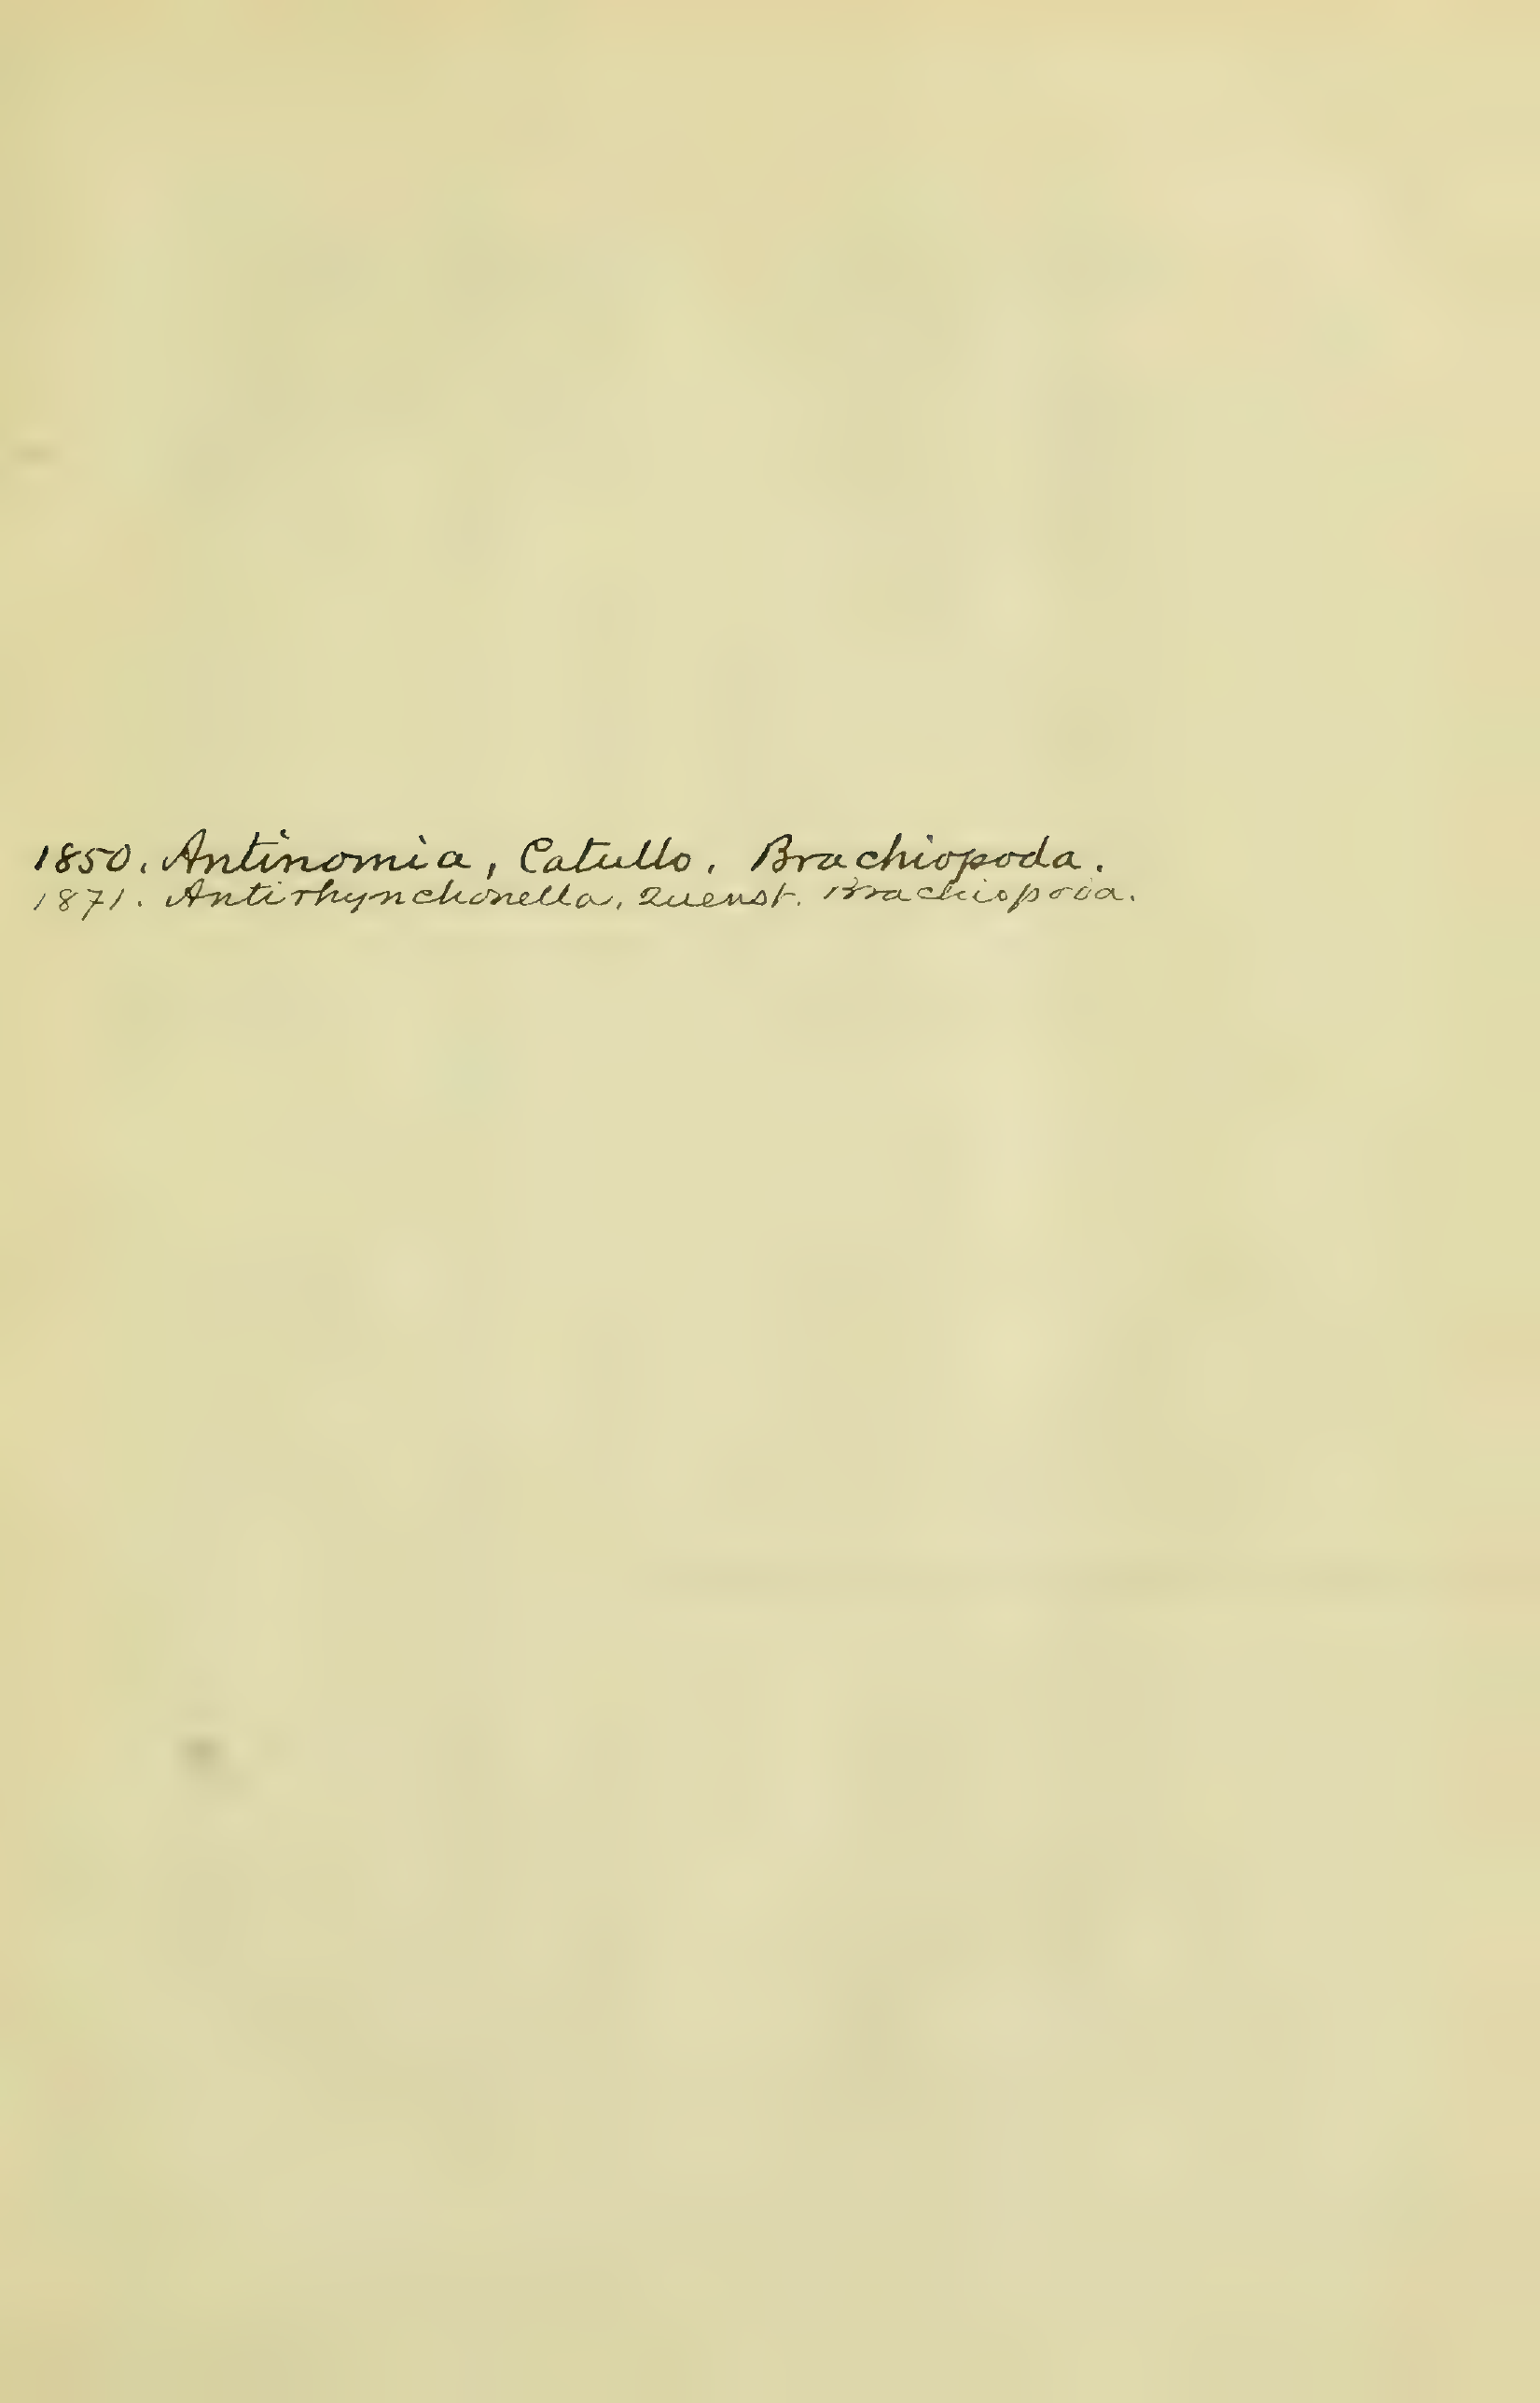 1850. Antinomia, Catullo. Brachiopoda.
1871. Antirhynchonella, Quenst. Brachiopoda.